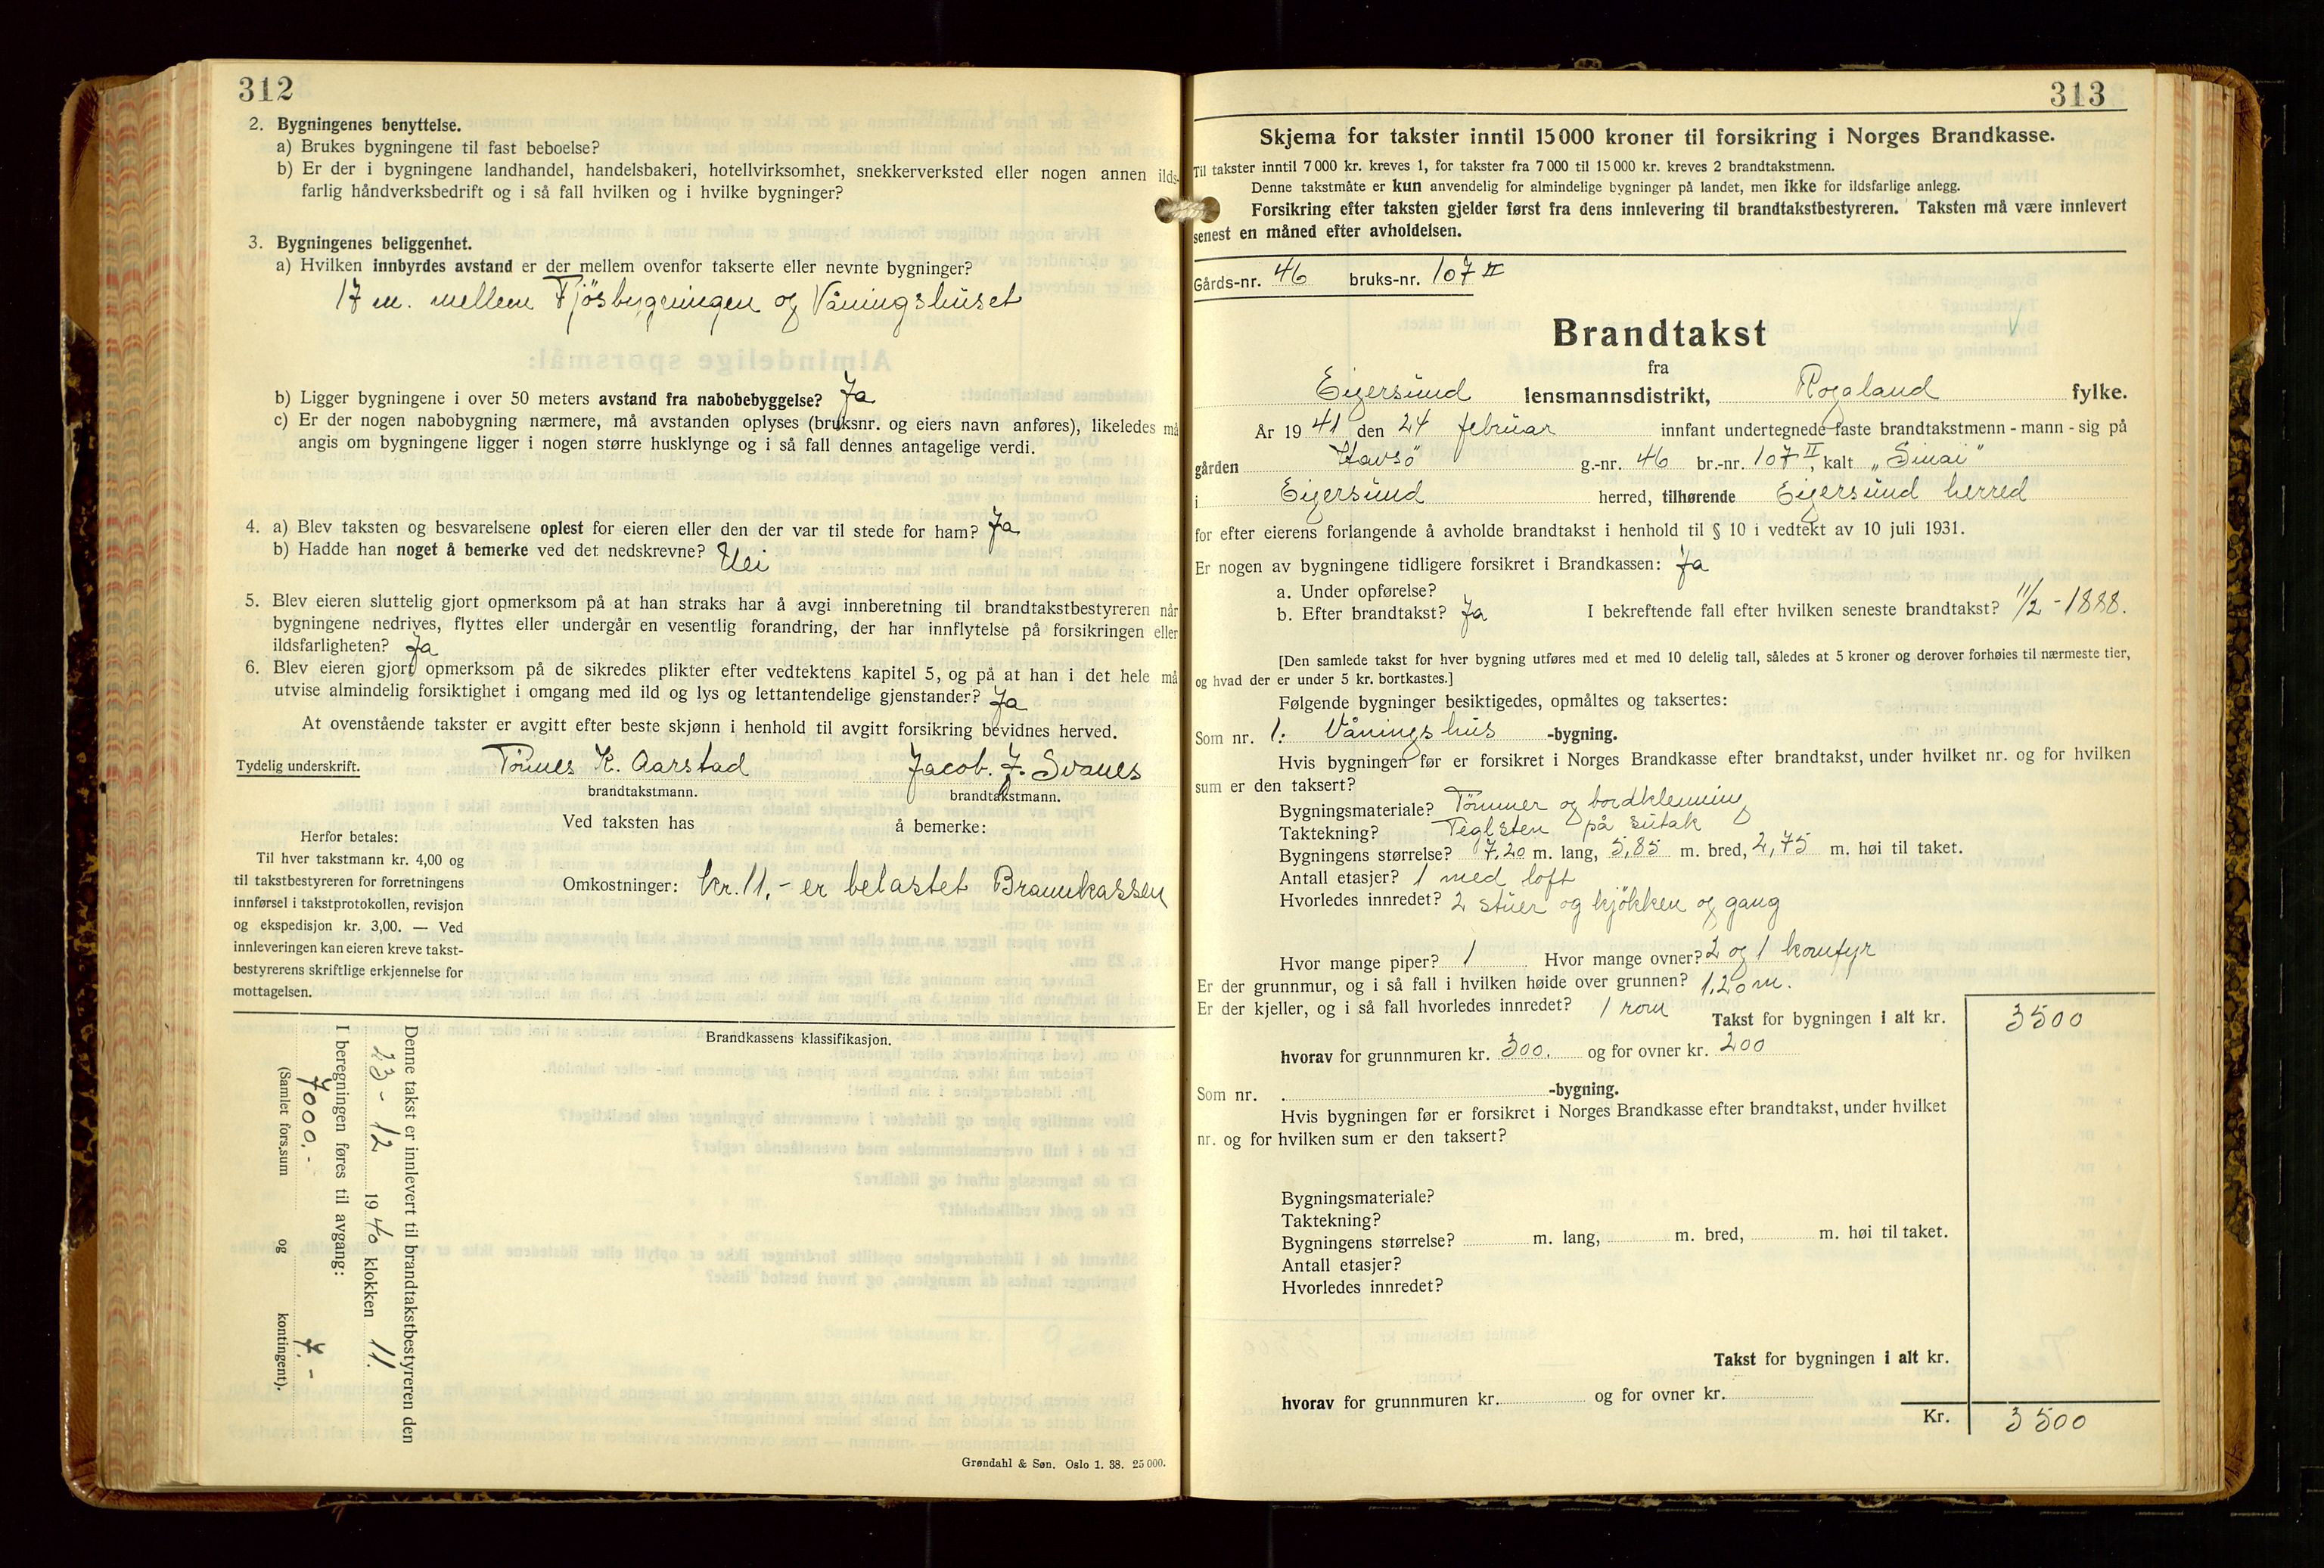 312
2. Bygningenes benyttelse.
a) Brukes bygningene til fast beboelse?
b) Er der i bygningene landhandel, handelsbakeri, hotellvirksomhet, snekkerverksted eller nogen annen ilds-
farlig håndverksbedrift og i så fall hvilken og i hvilke bygninger?
3. Bygningenes beliggenhet.
a) Hvilken innbyrdes avstand er der mellem ovenfor takserte eller nevnte bygninger?
17 m. mellem Fjösbygningen og Våningshuset
b) Ligger bygningene i over 50 meters avstand fra nabobebyggelse? Ja
c) Er der nogen nabobygning nærmere, må avstanden oplyses (bruksnr. og eiers navn anføres), likeledes må
angis om bygningene ligger i nogen større husklynge og i så fall dennes antagelige verdi.
4. a) Blev taksten og besvarelsene oplest for eieren eller den der var til stede for ham? Ja
b) Hadde han noget å bemerke ved det nedskrevne? Nei
5. Blev eieren sluttelig gjort opmerksom på at han straks har å avgi innberetning til brandtakstbestyreren når
bygningene nedrives, flyttes eller undergår en vesentlig forandring, der har innflytelse på forsikringen eller
ildsfarligheten? Ja
6. Blev eieren gjort opmerksom på de sikredes plikter efter vedtektens kapitel 5, og på at han i det hele må
utvise almindelig forsiktighet i omgang med ild og lys og lettantendelige gjenstander? Ja
At ovenstående takster er avgitt efter beste skjønn i henhold til avgitt forsikring bevidnes herved.
Tydelig underskrift. Tönnes K. Aarstad Jacob. J. Svanes
brandtakstmann. brandtakstmann.
Ved taksten has å bemerke:
Herfor betales:
Til hver takstmann kr. 4,00 og
til takstbestyreren for forretningens
innførsel i takstprotokollen, revisjon
og ekspedisjon kr. 3,00. — Ved
innleveringen kan eieren kreve takst-
bestyrerens skriftlige erkjennelse for
mottagelsen.
Omkostninger: kr. 11,- er belastet Brannkassen
Brandkassens klassifikasjon.
Denne takst er innlevert til brandtakstbestyreren den
23 - 12 1940 klokken 11.
I beregningen føres til avgang:
7000.- 7.-
(Samlet fors.sum og kontingent).
Grøndahl & Søn. Oslo 1. 38. 25 000.
313
Skjema for takster inntil 15 000 kroner til forsikring i Norges Brandkasse.
Til takster inntil 7 000 kr. kreves 1, for takster fra 7 000 til 15 000 kr. kreves 2 brandtakstmenn.
Denne takstmåte er kun anvendelig for almindelige bygninger på landet, men ikke for ildsfarlige anlegg.
Forsikring efter taksten gjelder først fra dens innlevering til brandtakstbestyreren. Taksten må være innlevert
senest en måned efter avholdelsen.
Gårds-nr. 46 bruks-nr. 107 II
Brandtakst
fra
Eigersund lensmannsdistrikt, Rogaland fylke.
År 1941 den 24 februar innfant undertegnede faste brandtakstmenn - mann - sig på
gården Havsö g.-nr. 46 br.-nr. 107 II, kalt „Sinai"
i Eigersund herred, tilhørende Eigersund herred
for efter eierens forlangende å avholde brandtakst i henhold til § 10 i vedtekt av 10 juli 1931.
Er nogen av bygningene tidligere forsikret i Brandkassen: Ja
a. Under opførelse?
b. Efter brandtakst? Ja I bekreftende fall efter hvilken seneste brandtakst? 11/2 - 1888.
[Den samlede takst for hver bygning utføres med et med 10 delelig tall, således at 5 kroner og derover forhøies til nærmeste tier,
og hvad der er under 5 kr. bortkastes.]
Følgende bygninger besiktigedes, opmåltes og taksertes:
Som nr. 1. Våningshus -bygning.
Hvis bygningen før er forsikret i Norges Brandkasse efter brandtakst, under hvilket nr. og for hvilken
sum er den taksert?
Bygningsmateriale? Tömmer og bordklemning
Taktekning? Teglsten på sutak
Bygningens størrelse? 7,20 m. lang, 5,85 m. bred, 2,75 m. høi til taket.
Antall etasjer? 1 med loft
Hvorledes innredet? 2 stuer og kjökken og gang
Hvor mange piper? 1 Hvor mange ovner? 2 og 1 komfyr
Er der grunnmur, og i så fall i hvilken høide over grunnen? 1,20 m.
Er der kjeller, og i så fall hvorledes innredet? 1 rom
Takst for bygningen i alt kr. 3500
hvorav for grunnmuren kr. 300. og for ovner kr. 200
Som nr. -bygning.
Hvis bygningen før er forsikret i Norges Brandkasse efter brandtakst, under hvilket
nr. og for hvilken sum er den taksert?
Bygningsmateriale?
Taktekning?
Bygningens størrelse? m. lang, m. bred, m. høi til taket.
Antall etasjer?
Hvorledes innredet?
Takst for bygningen i alt kr.
hvorav for grunnmuren kr. og for ovner kr.
Kr. 3500